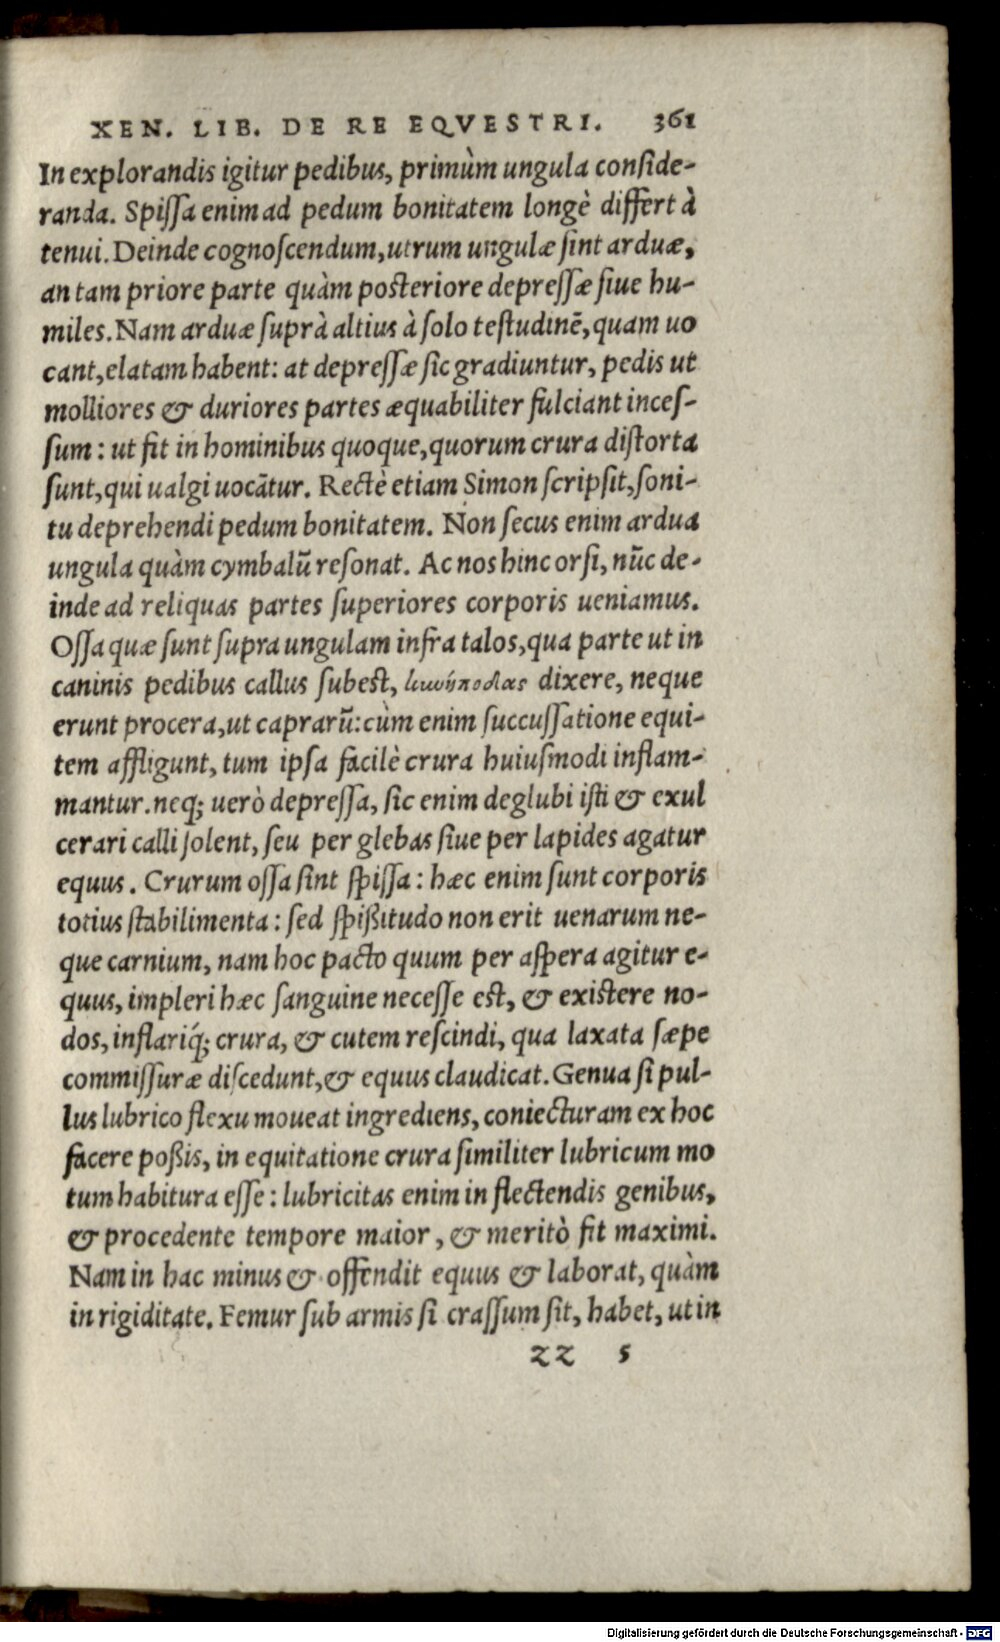 XEN. LIB. DE RE EQVESTRI. 361
In explorandis igitur pedibus, primùm ungula conside-
randa. Spissa enim ad pedum bonitatem longè differt à
tenui. Deinde cognoscendum, utrum ungulæ sint arduæ,
an tam priore parte quàm posteriore depressæ siue hu-
miles. Nam arduæ suprà altius à solo testudinē, quam uo
cant, elatam habent: at depressæ sic gradiuntur, pedis ut
molliores & duriores partes æquabiliter fulciant inces-
sum: ut fit in hominibus quoque, quorum crura distorta
sunt, qui ualgi uocātur. Rectè etiam Simon scripsit, soni-
tu deprehendi pedum bonitatem. Non secus enim ardua
ungula quàm cymbalū resonat. Ac nos hinc orsi, nūc de-
inde ad reliquas partes superiores corporis ueniamus.
Ossa quæ sunt supra ungulam infra talos, qua parte ut in
caninis pedibus callus subest, κυνήποδας dixere, neque
erunt procera, ut caprarū: cùm enim succussatione equi-
tem affligunt, tum ipsa facilè crura huiusmodi inflam-
mantur. neq; uerò depressa, sic enim deglubi isti & exul
cerari calli solent, seu per glebas siue per lapides agatur
equus. Crurum ossa sint spissa: hæc enim sunt corporis
totius stabilimenta: sed spißitudo non erit uenarum ne-
que carnium, nam hoc pacto quum per aspera agitur e-
quus, impleri hæc sanguine necesse est, & existere no-
dos, inflariq́; crura, & cutem rescindi, qua laxata sæpe
commissuræ discedunt, & equus claudicat. Genua si pul-
lus lubrico flexu moueat ingrediens, coniecturam ex hoc
facere poßis, in equitatione crura similiter lubricum mo
tum habitura esse: lubricitas enim in flectendis genibus,
& procedente tempore maior, & meritò fit maximi.
Nam in hac minus & offendit equus & laborat, quàm
in rigiditate. Femur sub armis si crassum sit, habet, ut in
zz 5
Digitalisierung gefördert durch die Deutsche Forschungsgemeinschaft - DFG